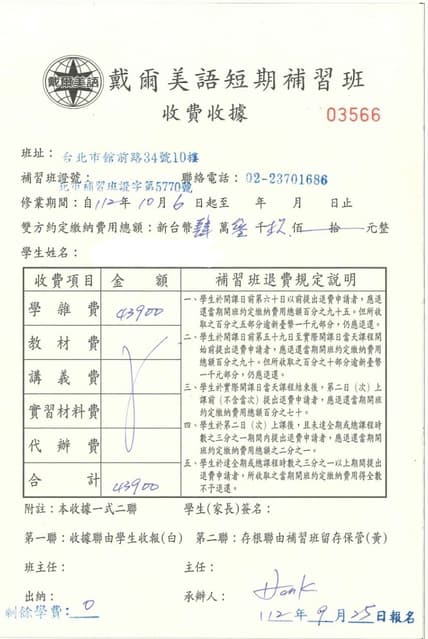 戴爾美語
戴爾美語短期補習班
收費收據
03566
班址:台北市館前路34號10樓
補習班證號:北市補習班證字第5770號 聯絡電話:02-23701686
修業期間:自112年10月6日起至 年 月 日止
雙方約定繳納費用總額:新台幣肆萬叁千玖佰 拾 元整
學生姓名:
收費項目 金額 補習班退費規定說明
學雜費 43900
教材費
講義費
實習材料費
代辦費
合計 43900
一、學生於開課日前第六十日以前提出退費申請者,應退
還當期開班約定繳納費用總額百分之九十五。但所收
取之百分之五部分逾新臺幣一千元部分,仍應退還。
二、學生於開課日前第五十九日至實際開課日當天課程開
始前提出退費申請者,應退還當期開班約定繳納費用
總額百分之九十。但所收取之百分之十部分逾新臺幣
一千元部分,仍應退還。
三、學生於實際開課日當天課程結束後,第二日(次)上
課前(不含當次)提出退費申請者,應退還當期開班
約定繳納費用總額百分之七十。
四、學生於第二日(次)上課後,且未逹全期或總課程時
數之三分之一期間內提出退費申請者,應退還當期開班
約定繳納費用總額之二分之一。
五、學生於逹全期或總課程時數之三分之一以上期間提出
退費申請者,所收取之當期開班約定繳納費用得全數
不予退還。
附註:本收據一式二聯 學生(家長)簽名:
第一聯:收據聯由學生收報(白) 第二聯:存根聯由補習班留存保管(黃)
班主任: 主任:
出納: 承辦人:Hank
剩餘學費:0 112年9月25日報名